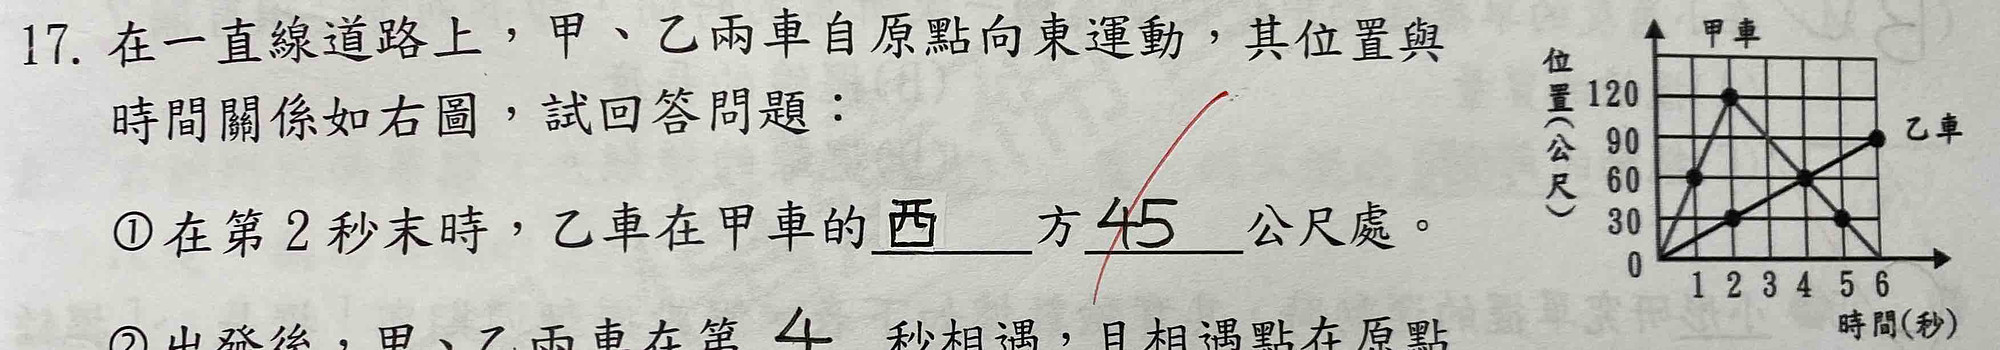 17. 在一直線道路上，甲、乙兩車自原點向東運動，其位置與
時間關係如右圖，試回答問題：
①在第2秒末時，乙車在甲車的 西 方 45 公尺處。
②出發後，甲、乙兩車在第 4 秒相遇，且相遇點在原點
甲車
位置(公尺)
120
90
60
30
0
乙車
1 2 3 4 5 6
時間(秒)